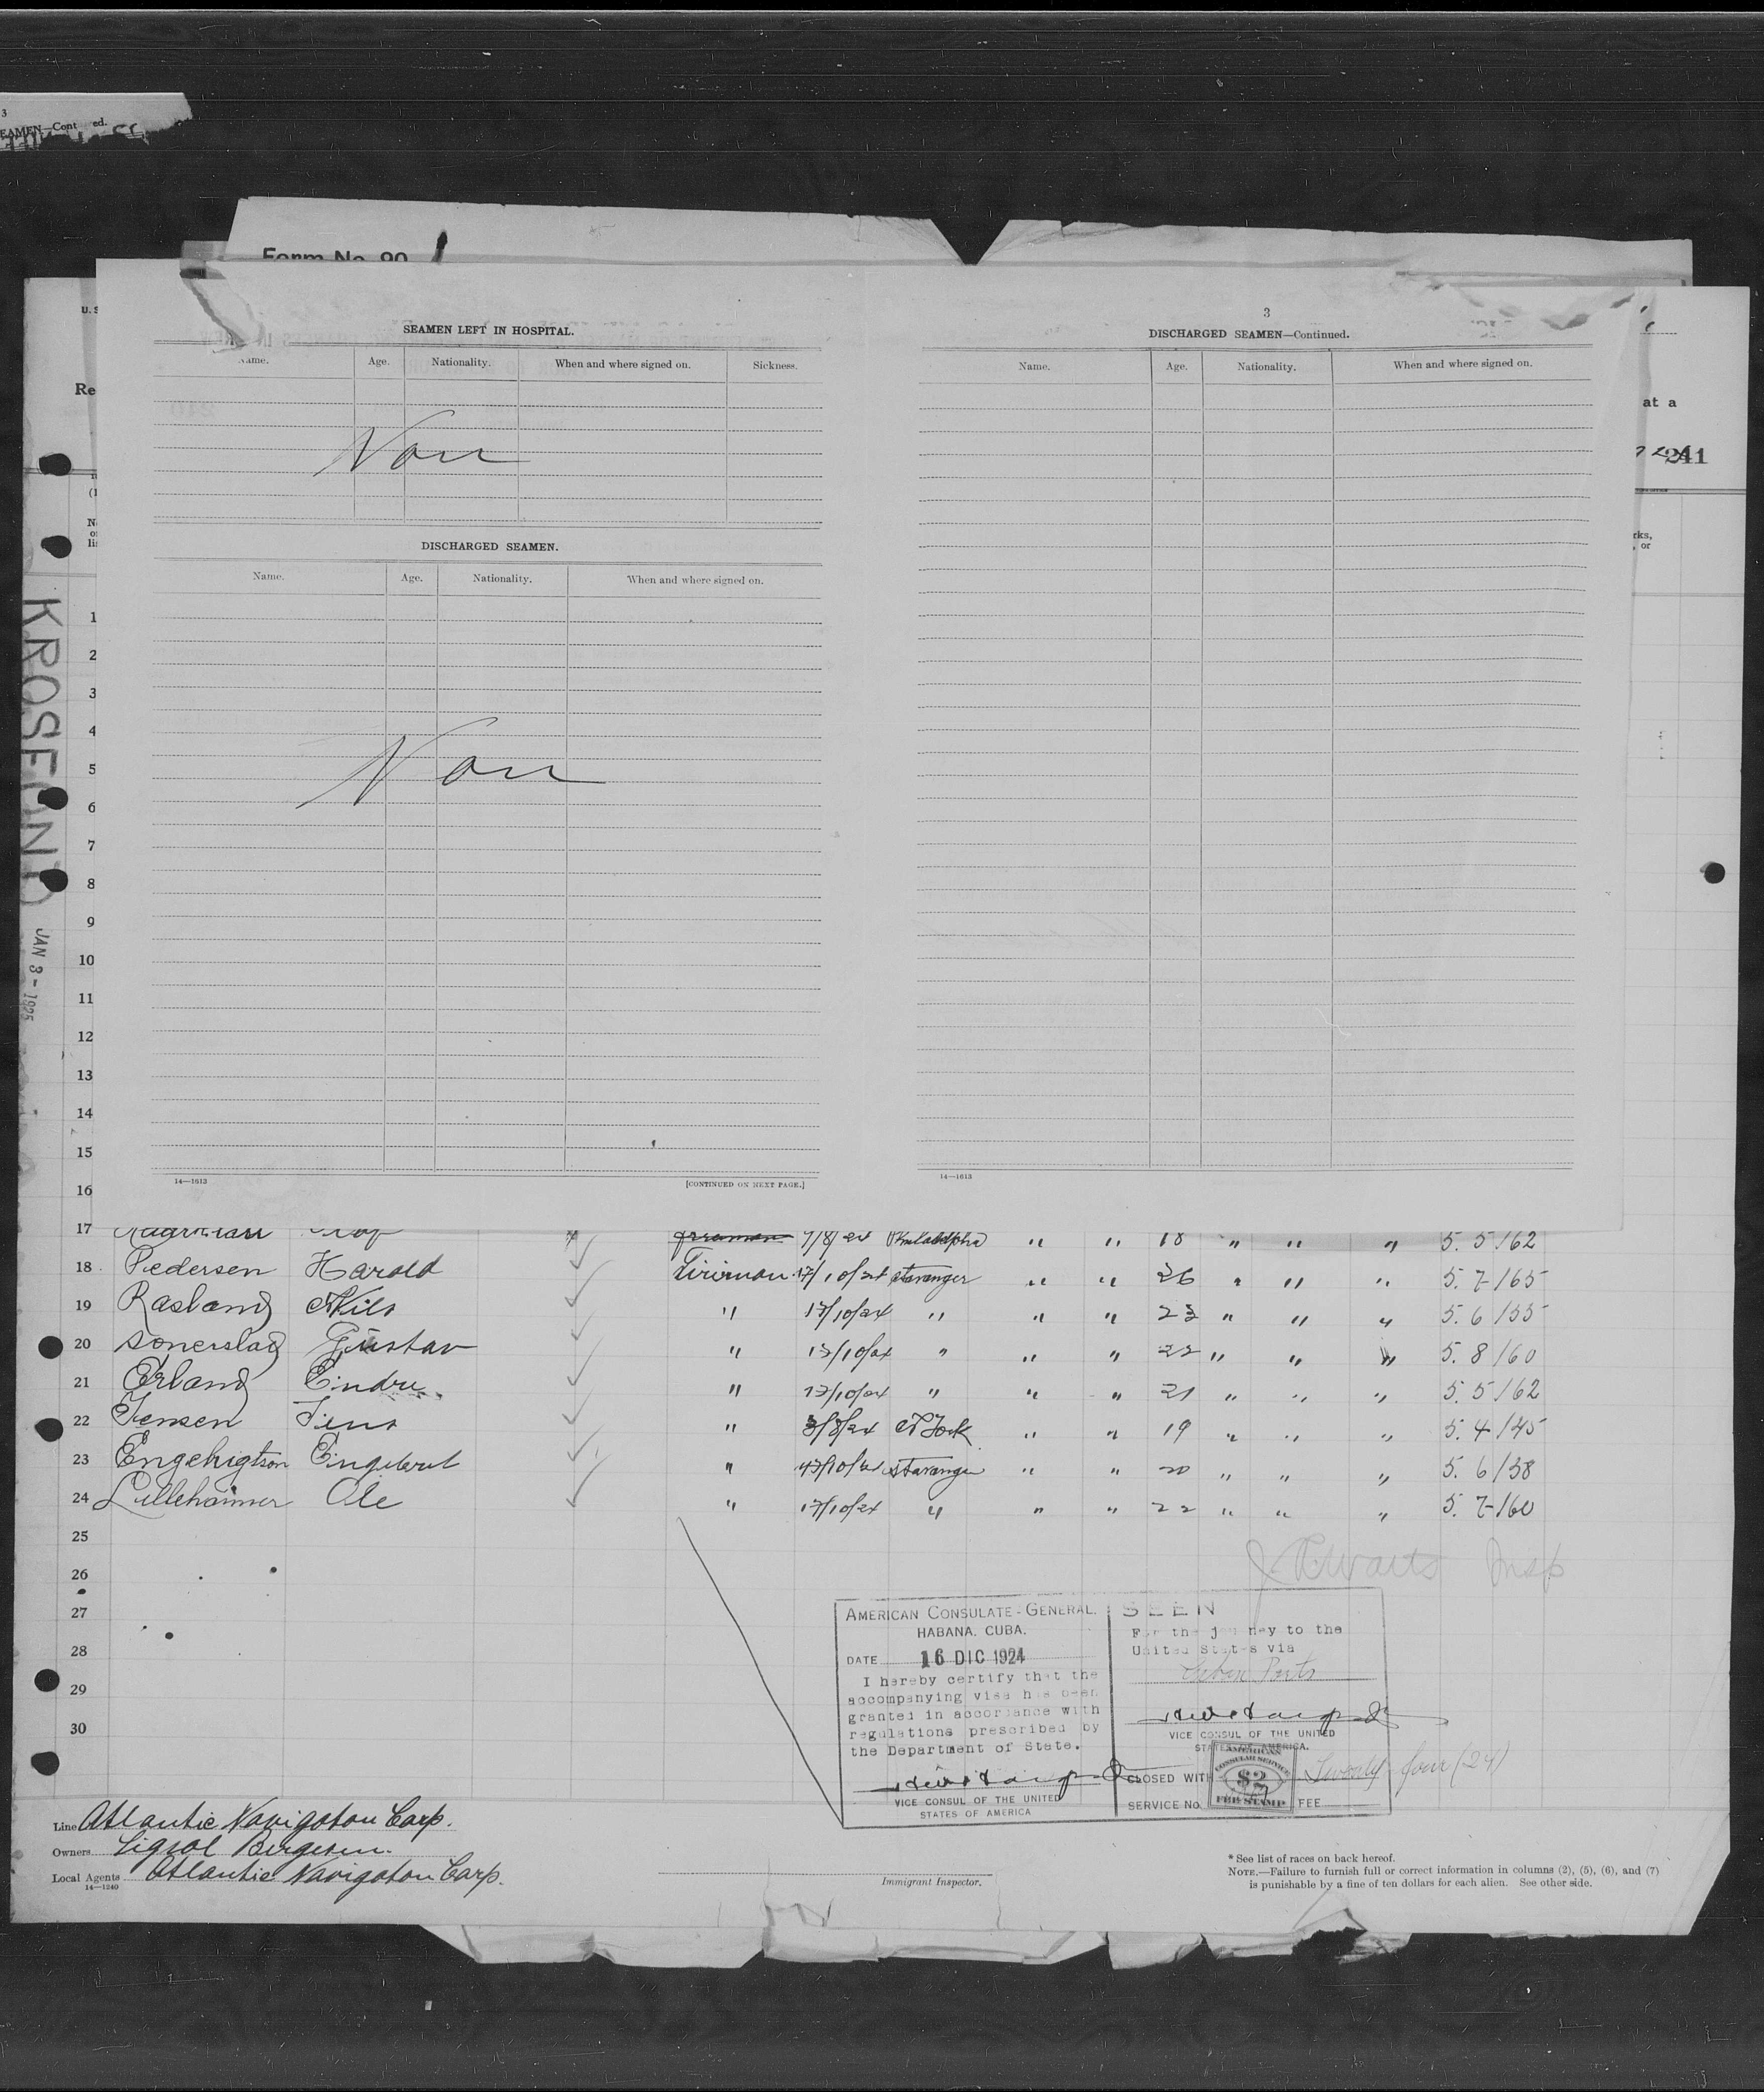 3
SEAMEN—Cont ed.
Form No. 90
U. S
Re
at a
241
rks,
, or
No
of
lis
KROSFOND
JAN 3 - 1925
SEAMEN LEFT IN HOSPITAL.
Name. Age. Nationality. When and where signed on. Sickness.
Non
DISCHARGED SEAMEN.
Name. Age. Nationality. When and where signed on.
Non
14—1613 [CONTINUED ON NEXT PAGE.]
3
DISCHARGED SEAMEN—Continued.
Name. Age. Nationality. When and where signed on.
14—1613
1
2
3
4
5
6
7
8
9
10
11
12
13
14
15
16
17 7/8/24 Philadelphia " " 18 " " " 5. 5/62
18 Pedersen Harold 17/10/24 Stavanger " " 26 " " " 5. 7/65
19 Rasland Nils " 17/10/24 " " " 23 " " " 5. 6/55
20 Sonerslad Gustav " 17/10/24 " " " 22 " " " 5. 8/60
21 Erland Eindre " 17/10/24 " " " 21 " " " 5. 5/62
22 Jensen Jens " 3/8/24 N York " " 19 " " " 5. 4/45
23 Engebrigtson Engebret " 17/10/24 Stavanger " " 20 " " " 5. 6/58
24 Lillehammer Ole " 17/10/24 " " " 22 " " " 5. 7/60
25
26
27
28
29
30
Insp
AMERICAN CONSULATE-GENERAL.
HABANA. CUBA.
DATE 16 DIC 1924
I hereby certify that the
accompanying visa has been
granted in accordance with
regulations prescribed by
the Department of State.
VICE CONSUL OF THE UNITED
STATES OF AMERICA
SEEN
For the journey to the
United States via
Cuban Ports
VICE CONSUL OF THE UNITED
STATES OF AMERICA.
CLOSED WITH Twenty four (24)
SERVICE No. FEE
AMERICAN
CONSULAR SERVICE
$2
FEE STAMP
Line Atlantic Navigation Corp.
Owners Sigval Bergesen.
Local Agents Atlantic Navigation Corp.
14—1240
Immigrant Inspector.
* See list of races on back hereof.
NOTE.—Failure to furnish full or correct information in columns (2), (5), (6), and (7)
is punishable by a fine of ten dollars for each alien. See other side.